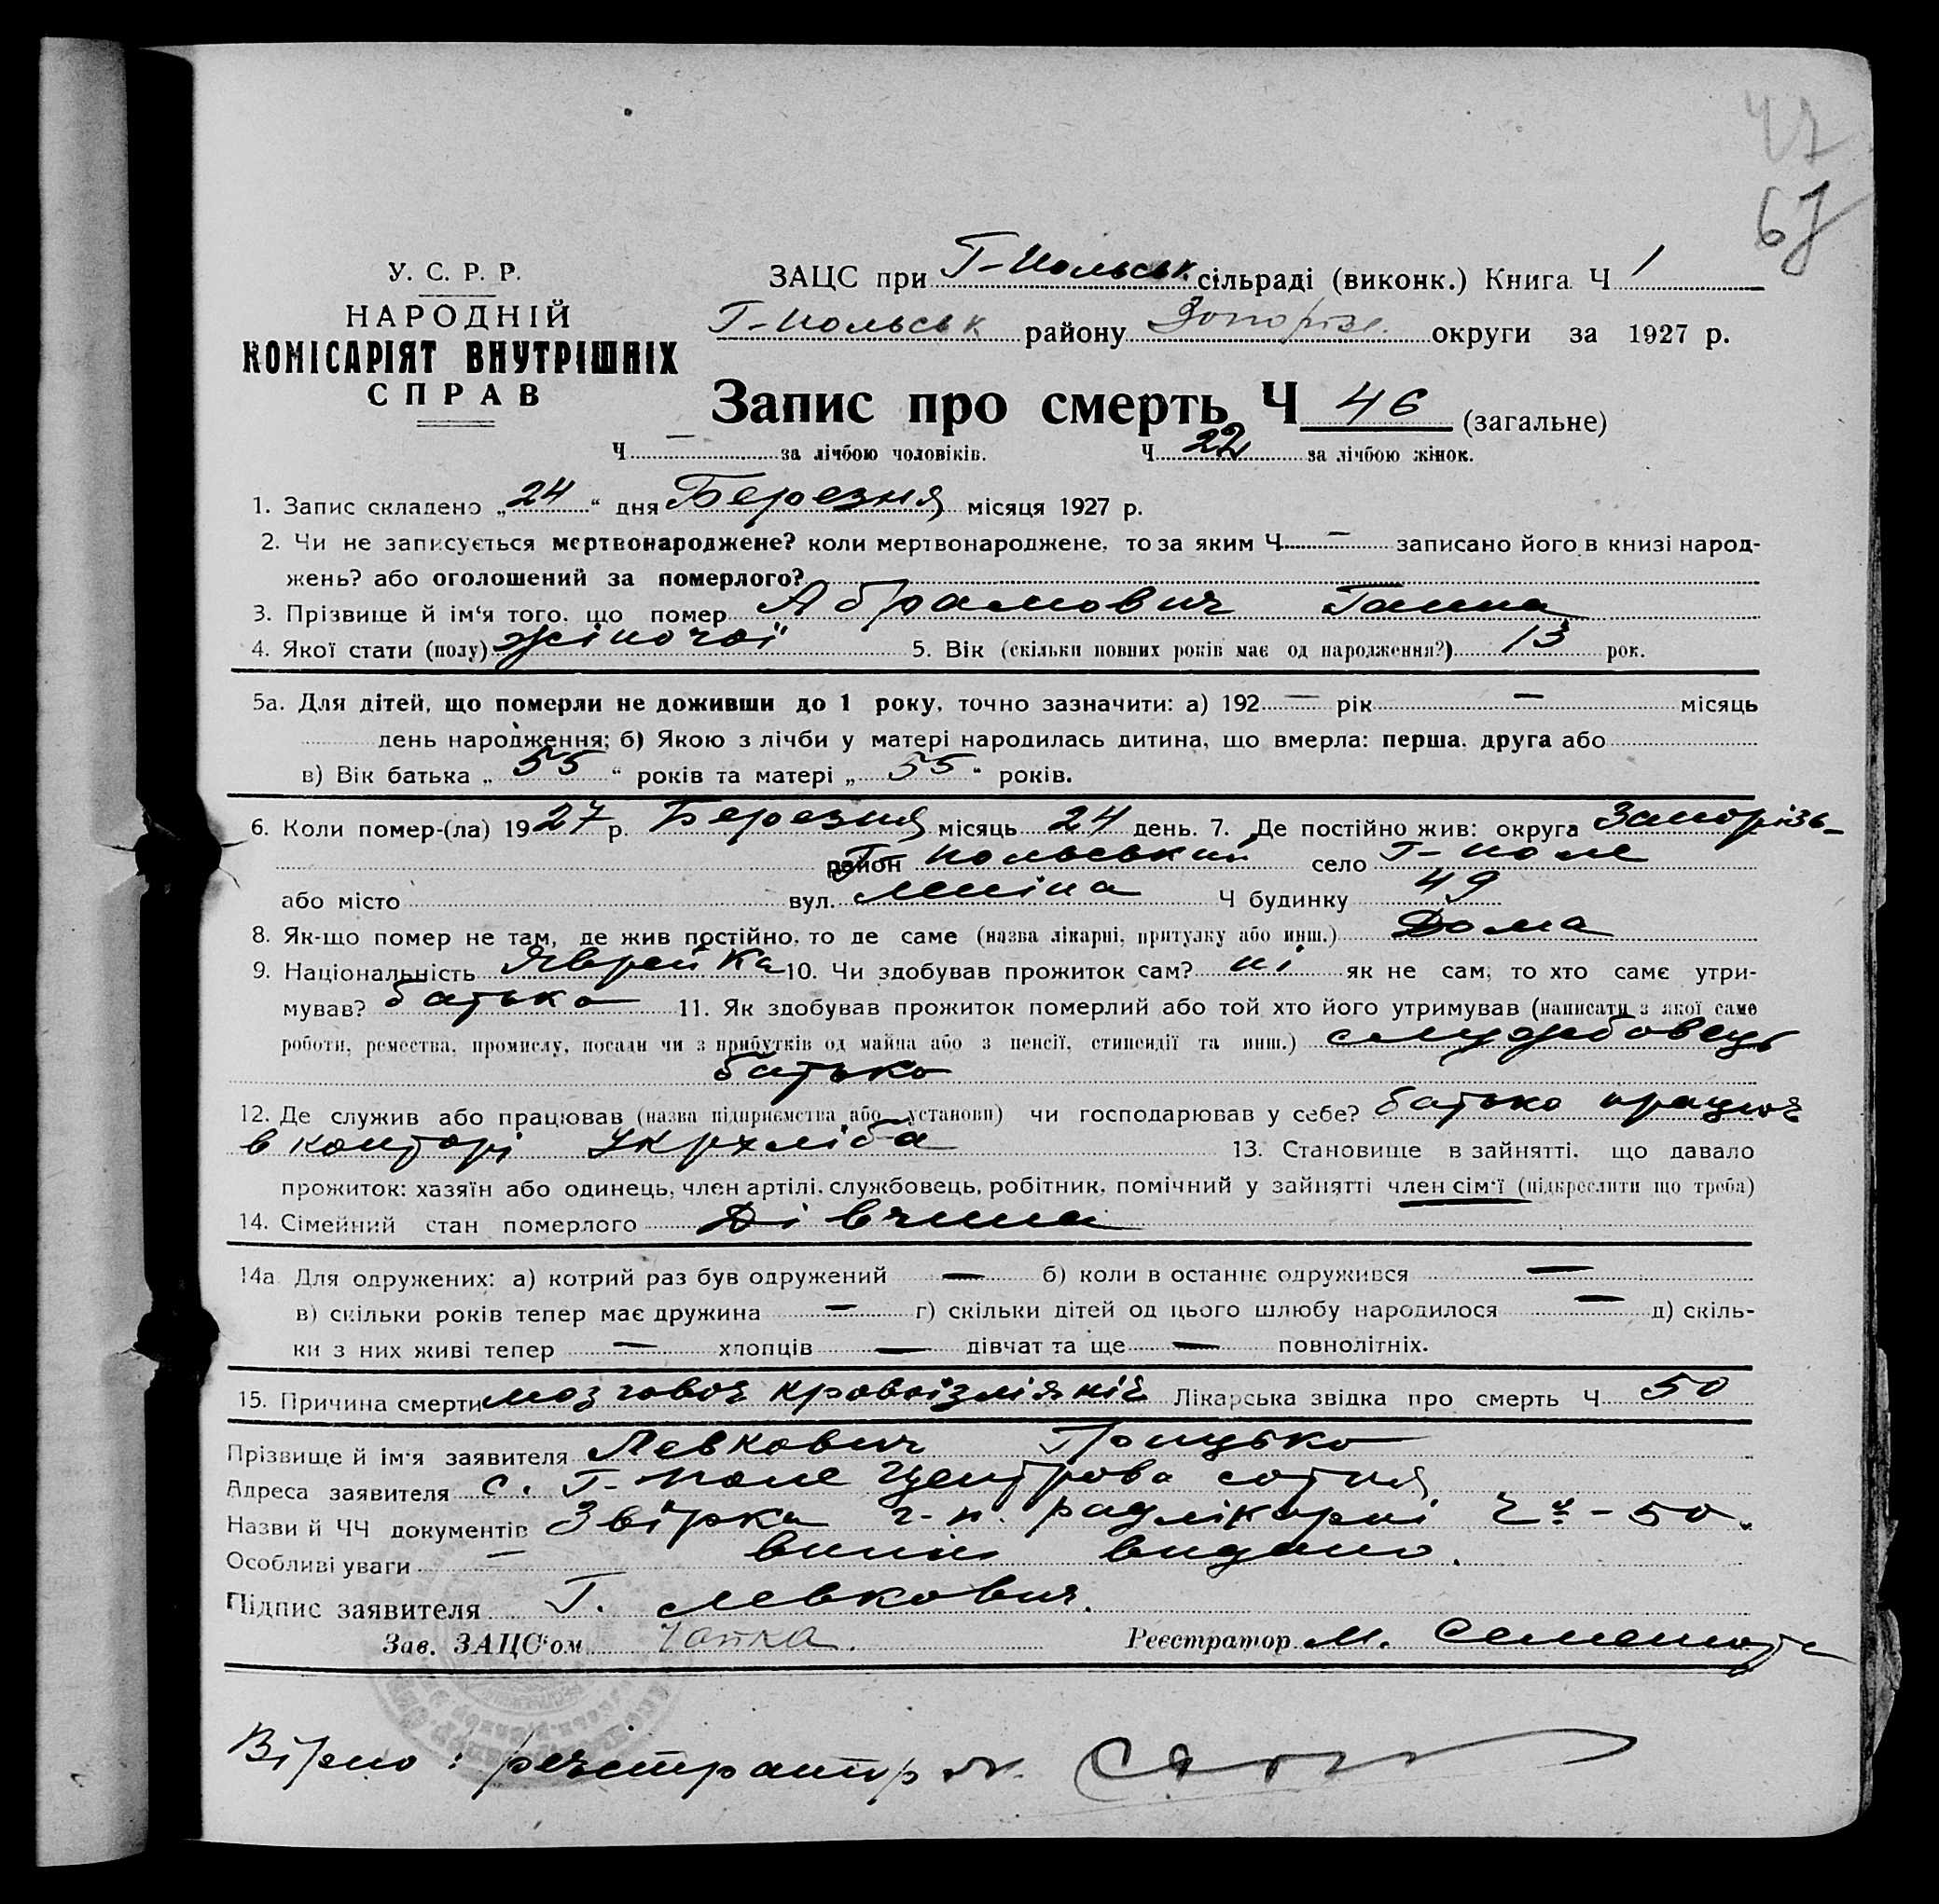 47
67
У. С. Р. Р.
НАРОДНІЙ
КОМІСАРІЯТ ВНУТРІШНІХ
СПРАВ
ЗАЦС при Г-Польськ. сільраді (виконк.) Книга Ч 1
Г-Польськ району Запоріз. округи за 1927 р.
Запис про смерть Ч 46 (загальне)
Ч — за лічбою чоловіків. Ч 22 за лічбою жінок.
1. Запис складено „24“ дня Березня місяця 1927 р.
2. Чи не записується мертвонароджене? коли мертвонароджене, то за яким Ч — записано його в книзі народ-
жень? або оголошений за померлого?
3. Прізвище й ім‘я того, що помер Абрамович Ганна
4. Якої стати (полу) жіночої 5. Вік (скільки повних років має од народження?) 13 рок.
5а. Для дітей, що померли не доживши до 1 року, точно зазначити: а) 192 — рік — місяць
день народження; б) Якою з лічби у матері народилась дитина, що вмерла: перша, друга або
в) Вік батька „ 55 “ років та матері „ 55 “ років.
6. Коли помер-(ла) 1927 р. Березня місяць 24 день. 7. Де постійно жив: округа Запорізь-
район Г-Польський село Г-Поле
або місто вул. Леніна Ч будинку 49
8. Як-що помер не там, де жив постійно, то де саме (назва лікарні, притулку або инш.) Дома
9. Національність Яврейка 10. Чи здобував прожиток сам? ні як не сам, то хто саме утри-
мував? батько 11. Як здобував прожиток померлий або той хто його утримував (написати з якої саме
роботи, ремества, промислу, посади чи з прибутків од майна або з пенсії, стипендії та инш.) службовець
батько
12. Де служив або працював (назва підприємства або установи) чи господарював у себе? батько працює
в конторі Укрхліба 13. Становище в зайнятті, що давало
прожиток: хазяїн або одинець, член артілі, службовець, робітник, помічний у зайнятті член сім‘ї (підкреслити що треба)
14. Сімейний стан померлого Дівчина
14а. Для одружених: а) котрий раз був одружений — б) коли в останнє одружився —
в) скільки років тепер має дружина — г) скільки дітей од цього шлюбу народилося — д) скіль-
ки з них живі тепер — хлопців — дівчат та ще — повнолітніх.
15. Причина смерти мозговоє кровоізліяніє Лікарська звідка про смерть Ч 50
Прізвище й ім‘я заявителя Левкович Грицько
Адреса заявителя с. Г-Поле Центрова сотня
Назви й ЧЧ документів Звірка г-п. райлікарні - 50.
Особливі уваги — видано.
Підпис заявителя Г. Левкович.
Зав. ЗАЦС‘ом Реєстратор М.
Вірно: реєстратор М.